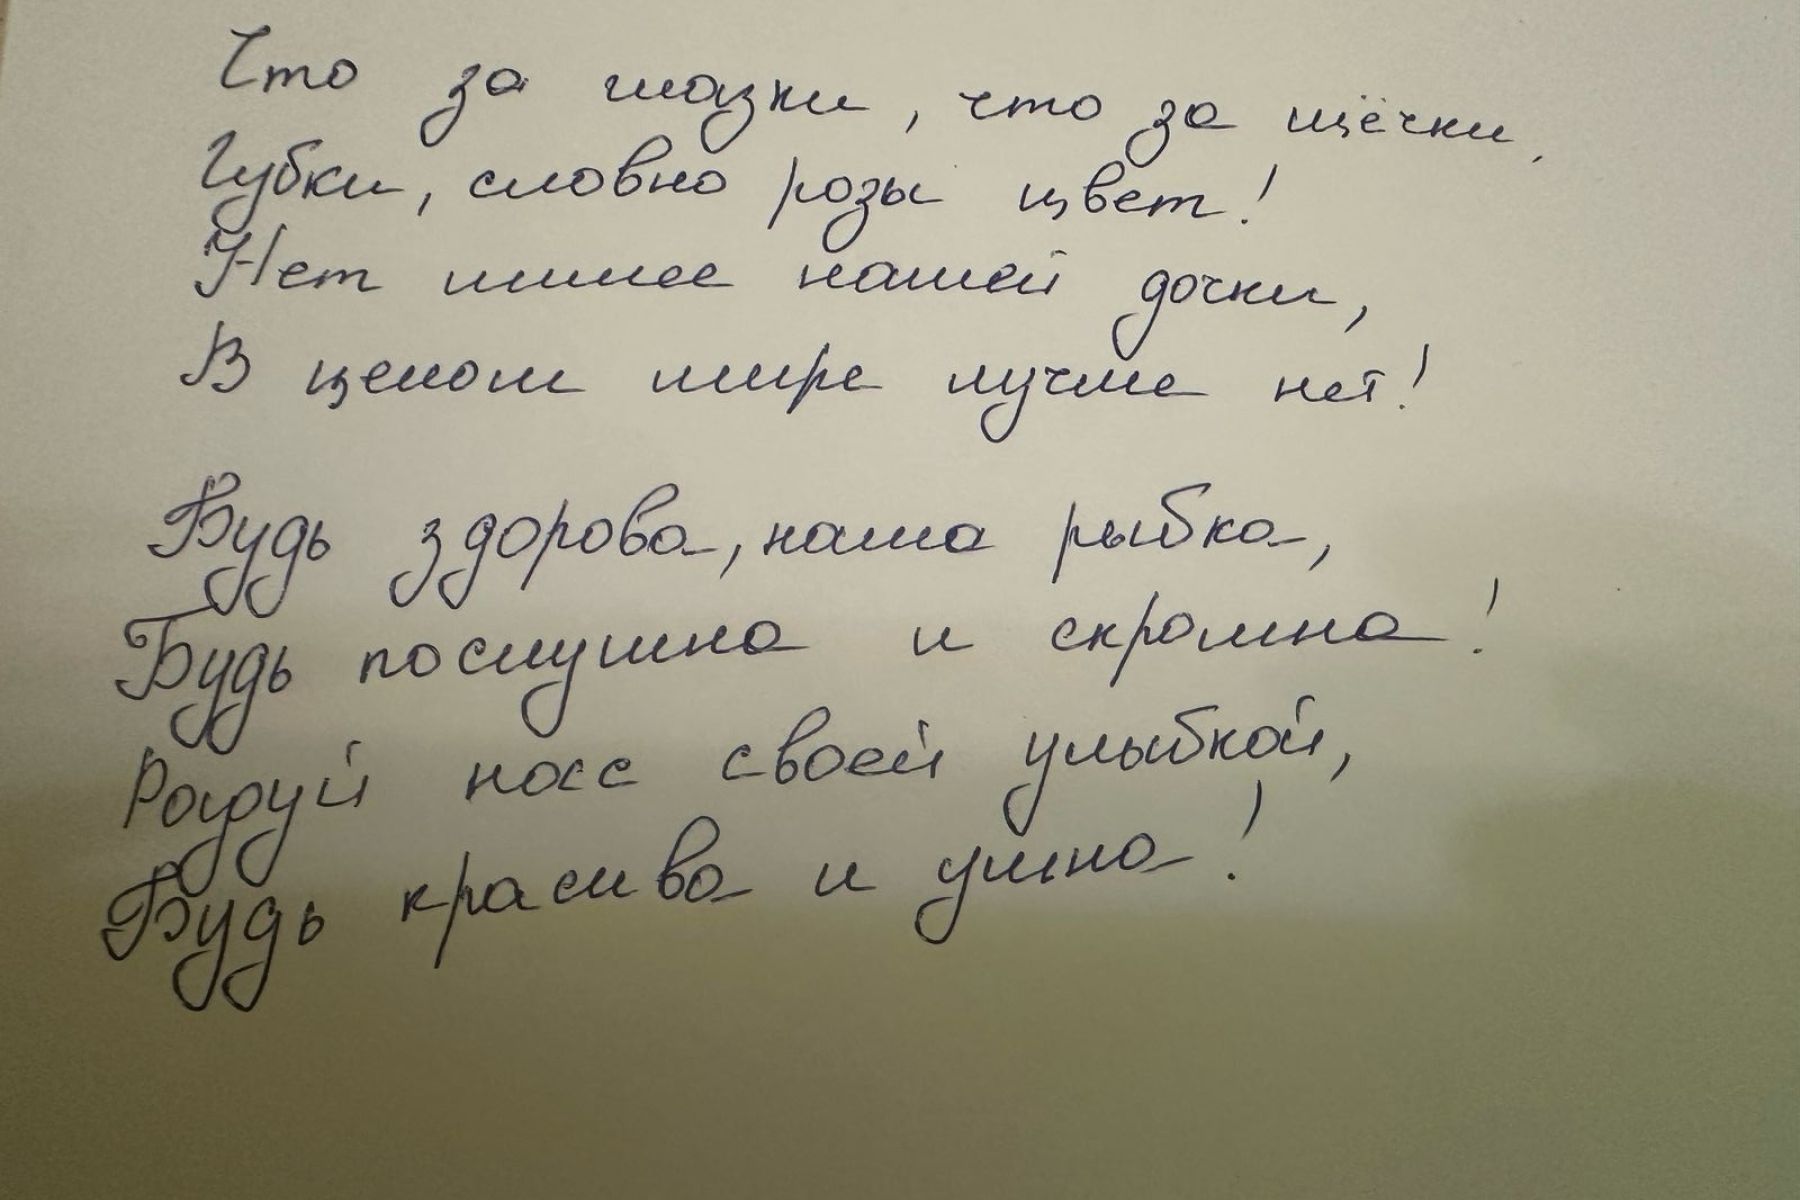 Что за глазки, что за щёчки,
Губки, словно розы цвет!
Нет милее нашей дочки,
В целом мире лучше нет!
Будь здорова, наша рыбка,
Будь послушна и скромна!
Радуй нас своей улыбкой,
Будь красива и умна!